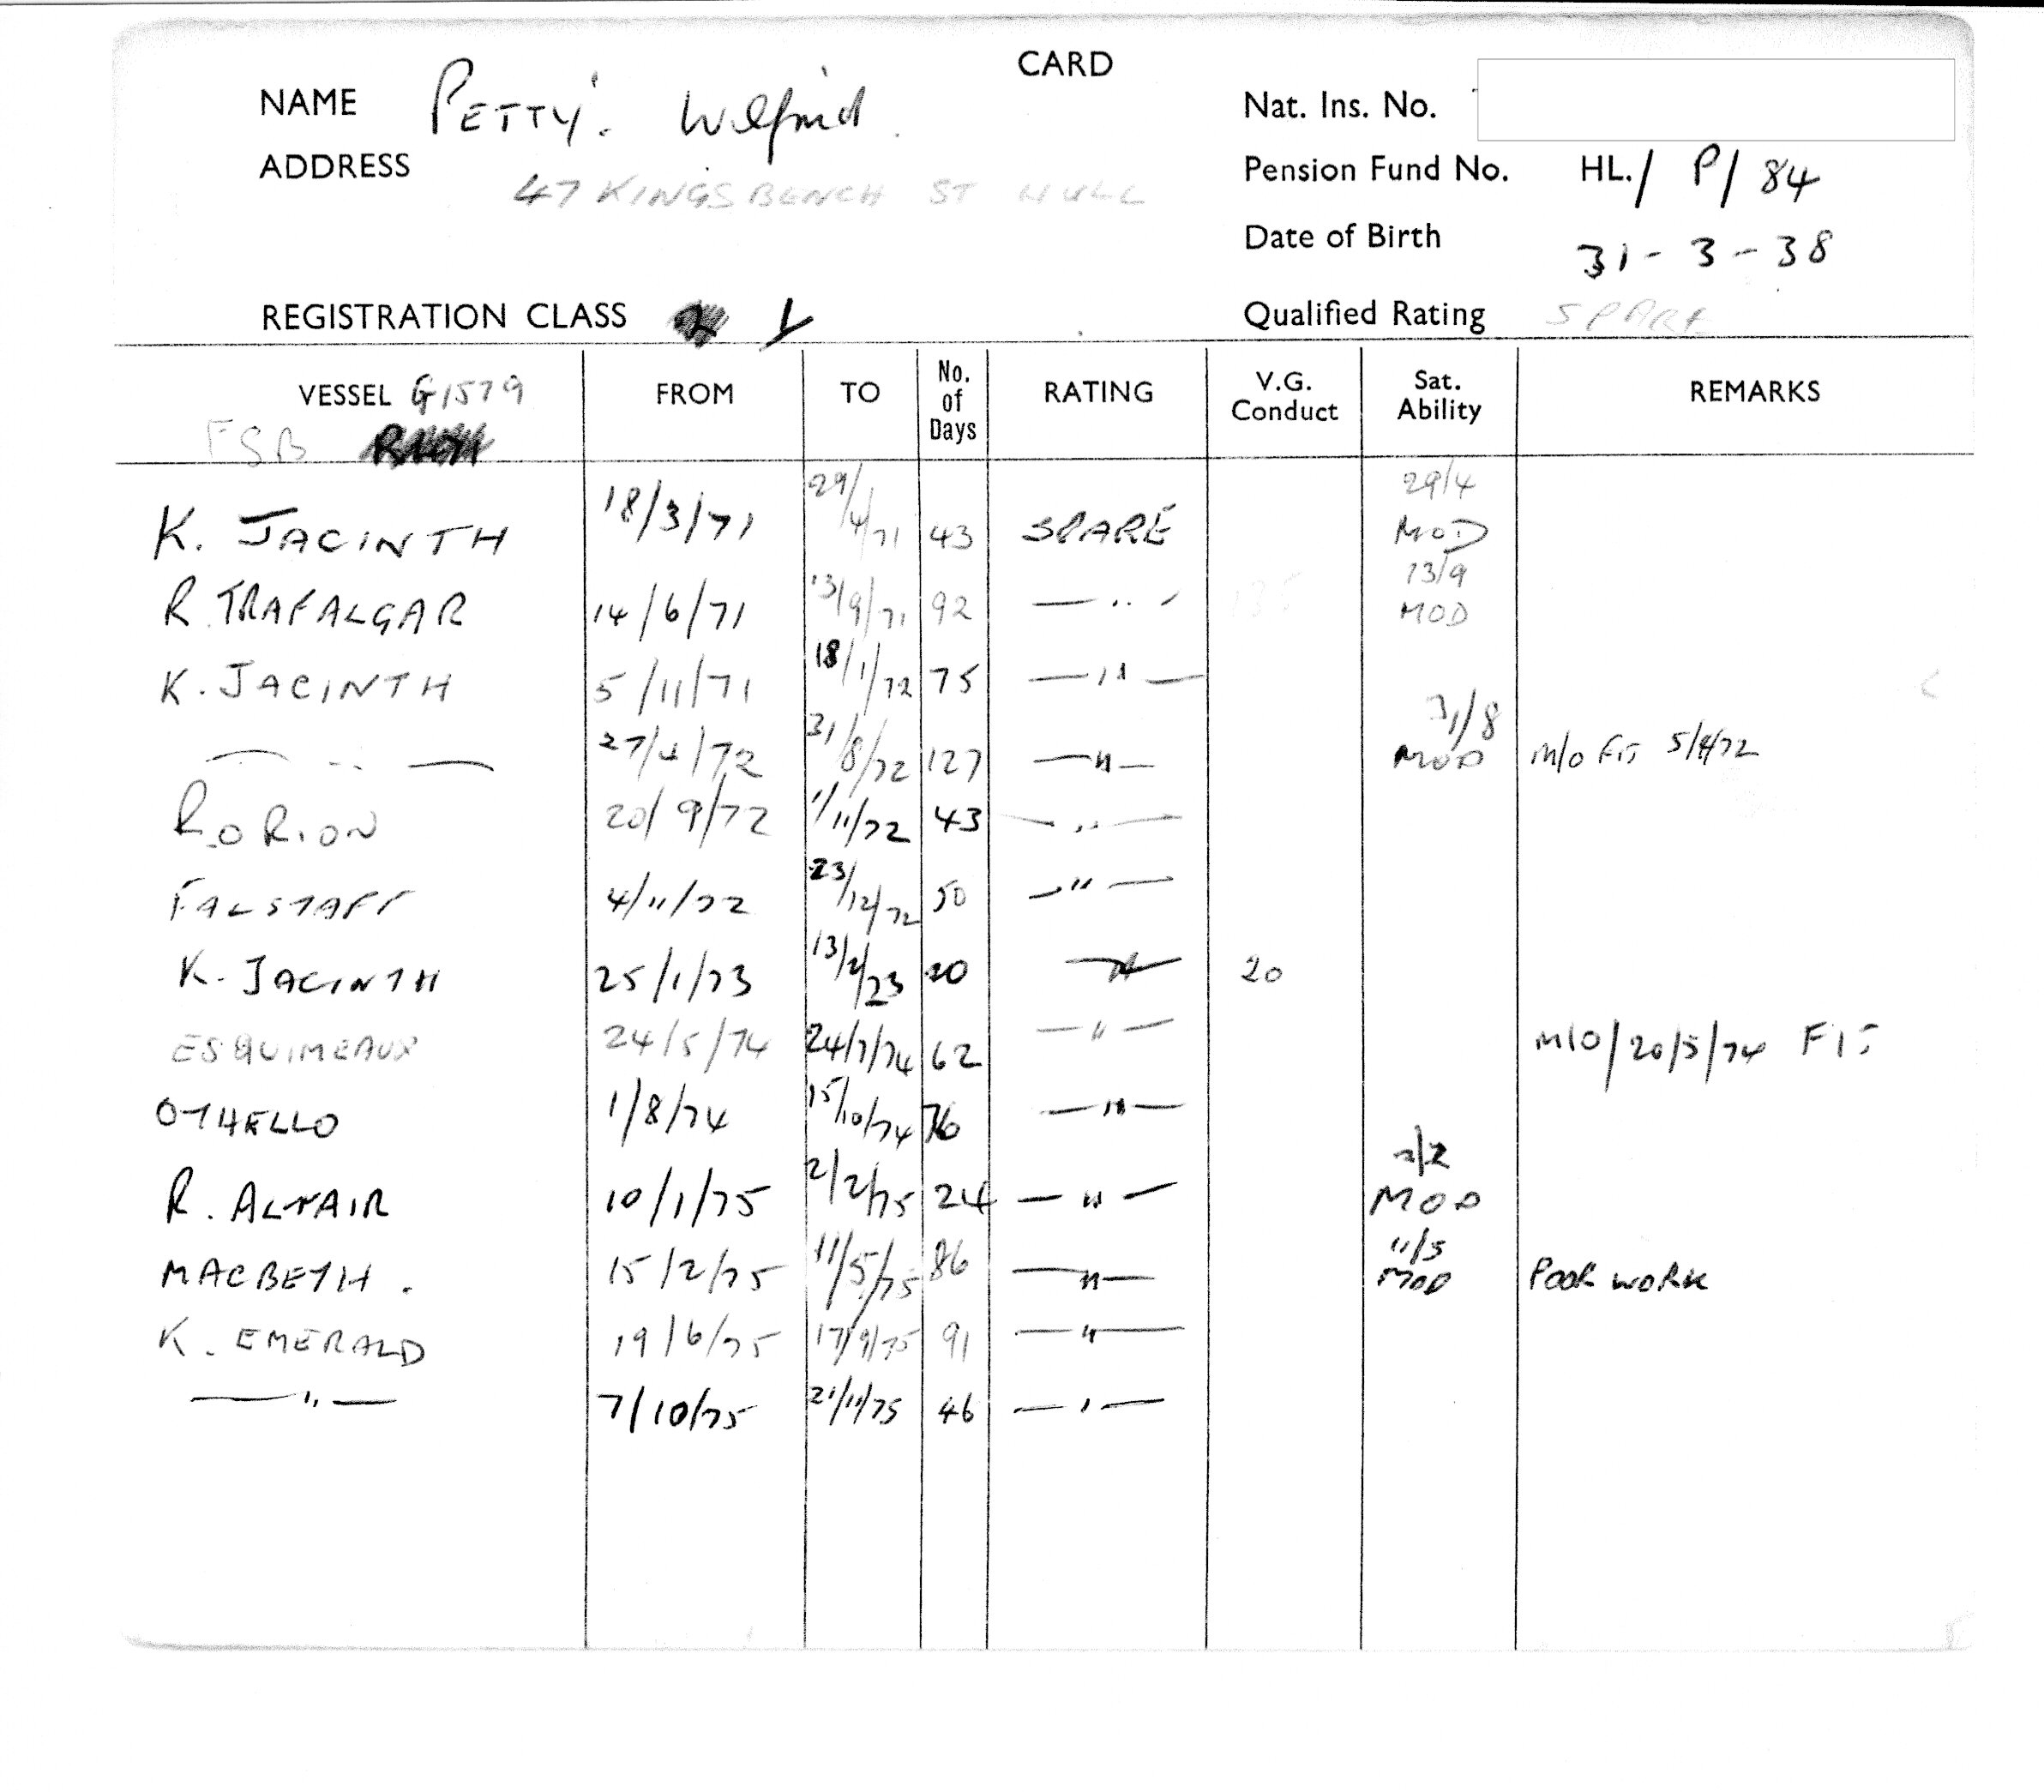 CARD
NAME PETTY. Wilfrid.
Nat. Ins. No.
ADDRESS 47 KINGS BENCH ST HULL
Pension Fund No. HL./ P/ 84
Date of Birth 31-3-38
REGISTRATION CLASS Y
Qualified Rating SPARE
VESSEL G1579 FROM TO No. of Days RATING V.G. Conduct Sat. Ability REMARKS
FSB
K. JACINTH 18/3/71 29/4/71 43 SPARE 29/4 MOD
R. TRAFALGAR 14/6/71 13/9/71 92 — " — 13/9 MOD
K. JACINTH 5/11/71 18/1/72 75 — " —
— " — 27/4/72 31/8/72 127 — " — 31/8 MOD M/O FIT 5/4/72
R. ORION 20/9/72 1/11/72 43 — " —
FALSTAFF 4/11/72 23/12/72 50 — " —
K. JACINTH 25/1/73 13/2/73 20 — " — 20
ESQUIMEAUX 24/5/74 24/7/74 62 — " — M/O/20/5/74 FIT
OTHELLO 1/8/74 15/10/74 76 — " —
R. ALTAIR 10/1/75 2/2/75 24 — " — 2/2 MOD
MACBETH. 15/2/75 11/5/75 86 — " — 11/5 MOD POOR WORK
K. EMERALD 19/6/75 17/9/75 91 — " —
— " — 7/10/75 21/11/75 46 — " —